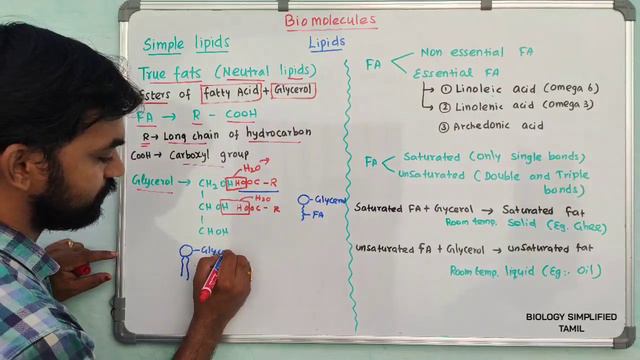 Biomolecules
Simple lipids
Lipids
True fats (Neutral lipids)
Esters of fatty Acid + Glycerol
FA → R - COOH
R → Long chain of hydrocarbon
COOH → Carboxyl group
Glycerol → CH2OH HOOC - R
H2O
CHOH HOOC - R
H2O
CHOH
Glycerol
FA
Glyc
FA
Non essential FA
Essential FA
① Linoleic acid (omega 6)
② Linolenic acid (omega 3)
③ Archedonic acid
FA
Saturated (only single bonds)
unsaturated (Double and Triple
bonds)
Saturated FA + Gycerol → Saturated fat
Room temp. Solid (Eg. Ghee)
unsaturated FA + Glycerol → unsaturated fat
Room temp. liquid (Eg:. Oil)
BIOLOGY SIMPLIFIED
TAMIL